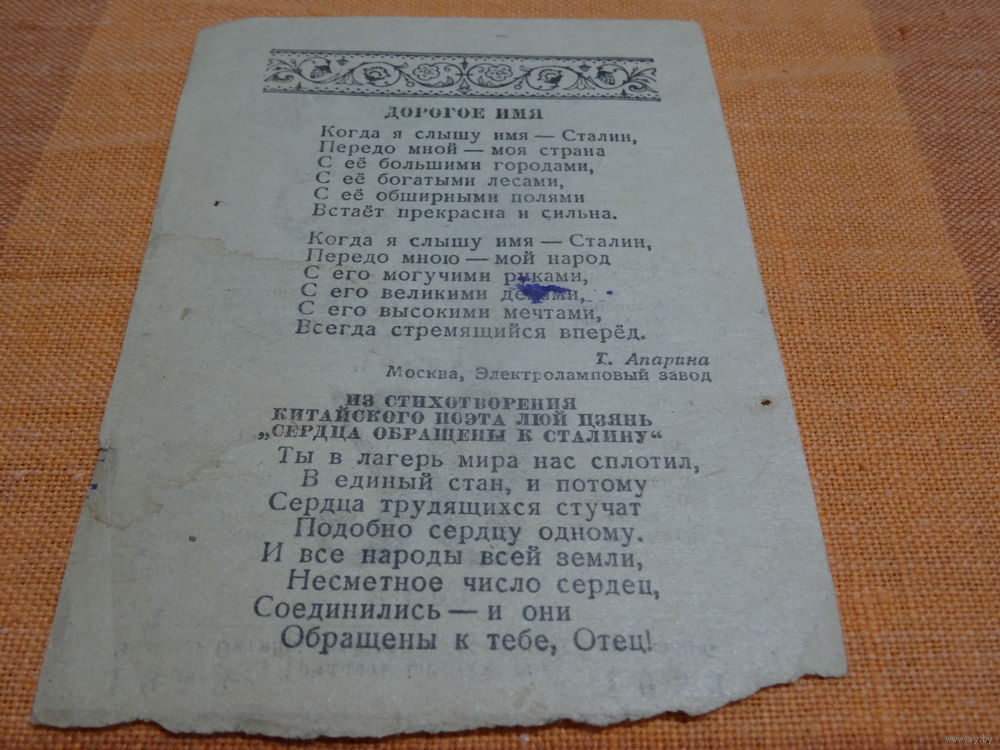 ДОРОГОЕ ИМЯ
Когда я слышу имя — Сталин,
Передо мной — моя страна
С её большими городами,
С её богатыми лесами,
С её обширными полями
Встаёт прекрасна и сильна.
Когда я слышу имя — Сталин,
Передо мною — мой народ
С его могучими руками,
С его великими делами,
С его высокими мечтами,
Всегда стремящийся вперёд.
Т. Апарина
Москва, Электроламповый завод
ИЗ СТИХОТВОРЕНИЯ
КИТАЙСКОГО ПОЭТА ЛЮЙ ЦЗЯНЬ
„СЕРДЦА ОБРАЩЕНЫ К СТАЛИНУ“
Ты в лагерь мира нас сплотил,
В единый стан, и потому
Сердца трудящихся стучат
Подобно сердцу одному.
И все народы всей земли,
Несметное число сердец,
Соединились — и они
Обращены к тебе, Отец!
www.ay.by